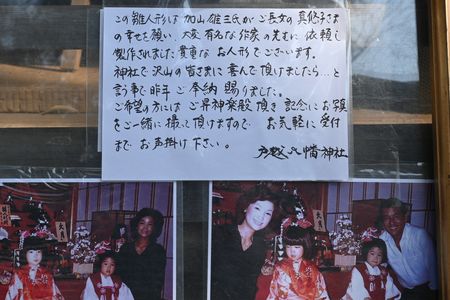 この雛人形は 加山雄三氏が ご長女の 真悠子さま
の幸せを願い、大変 有名な 作家の先生に 依頼し
製作されました 貴重な お人形でございます。
神社で 沢山の 皆さまに 喜んで 頂けましたら…と
言う事で 昨年 ご奉納 賜りました。
ご希望の方には ご昇神楽殿 頂き 記念に お写真
をご一緒に 撮って 頂けますので お気軽に 受付
まで お声掛け 下さい。
戸越八幡神社